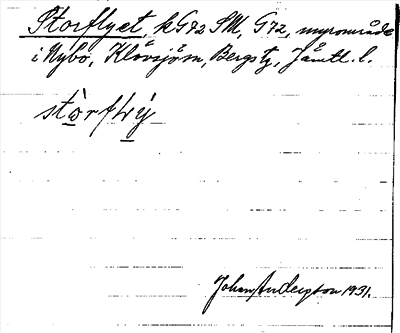 Storflyet, k G72 SM, G72, myrområde
i Nybo, Klövsjö sn, Bergs tg, Jämtl. l.
stòrflẁý
Johan Anderzson 1931.